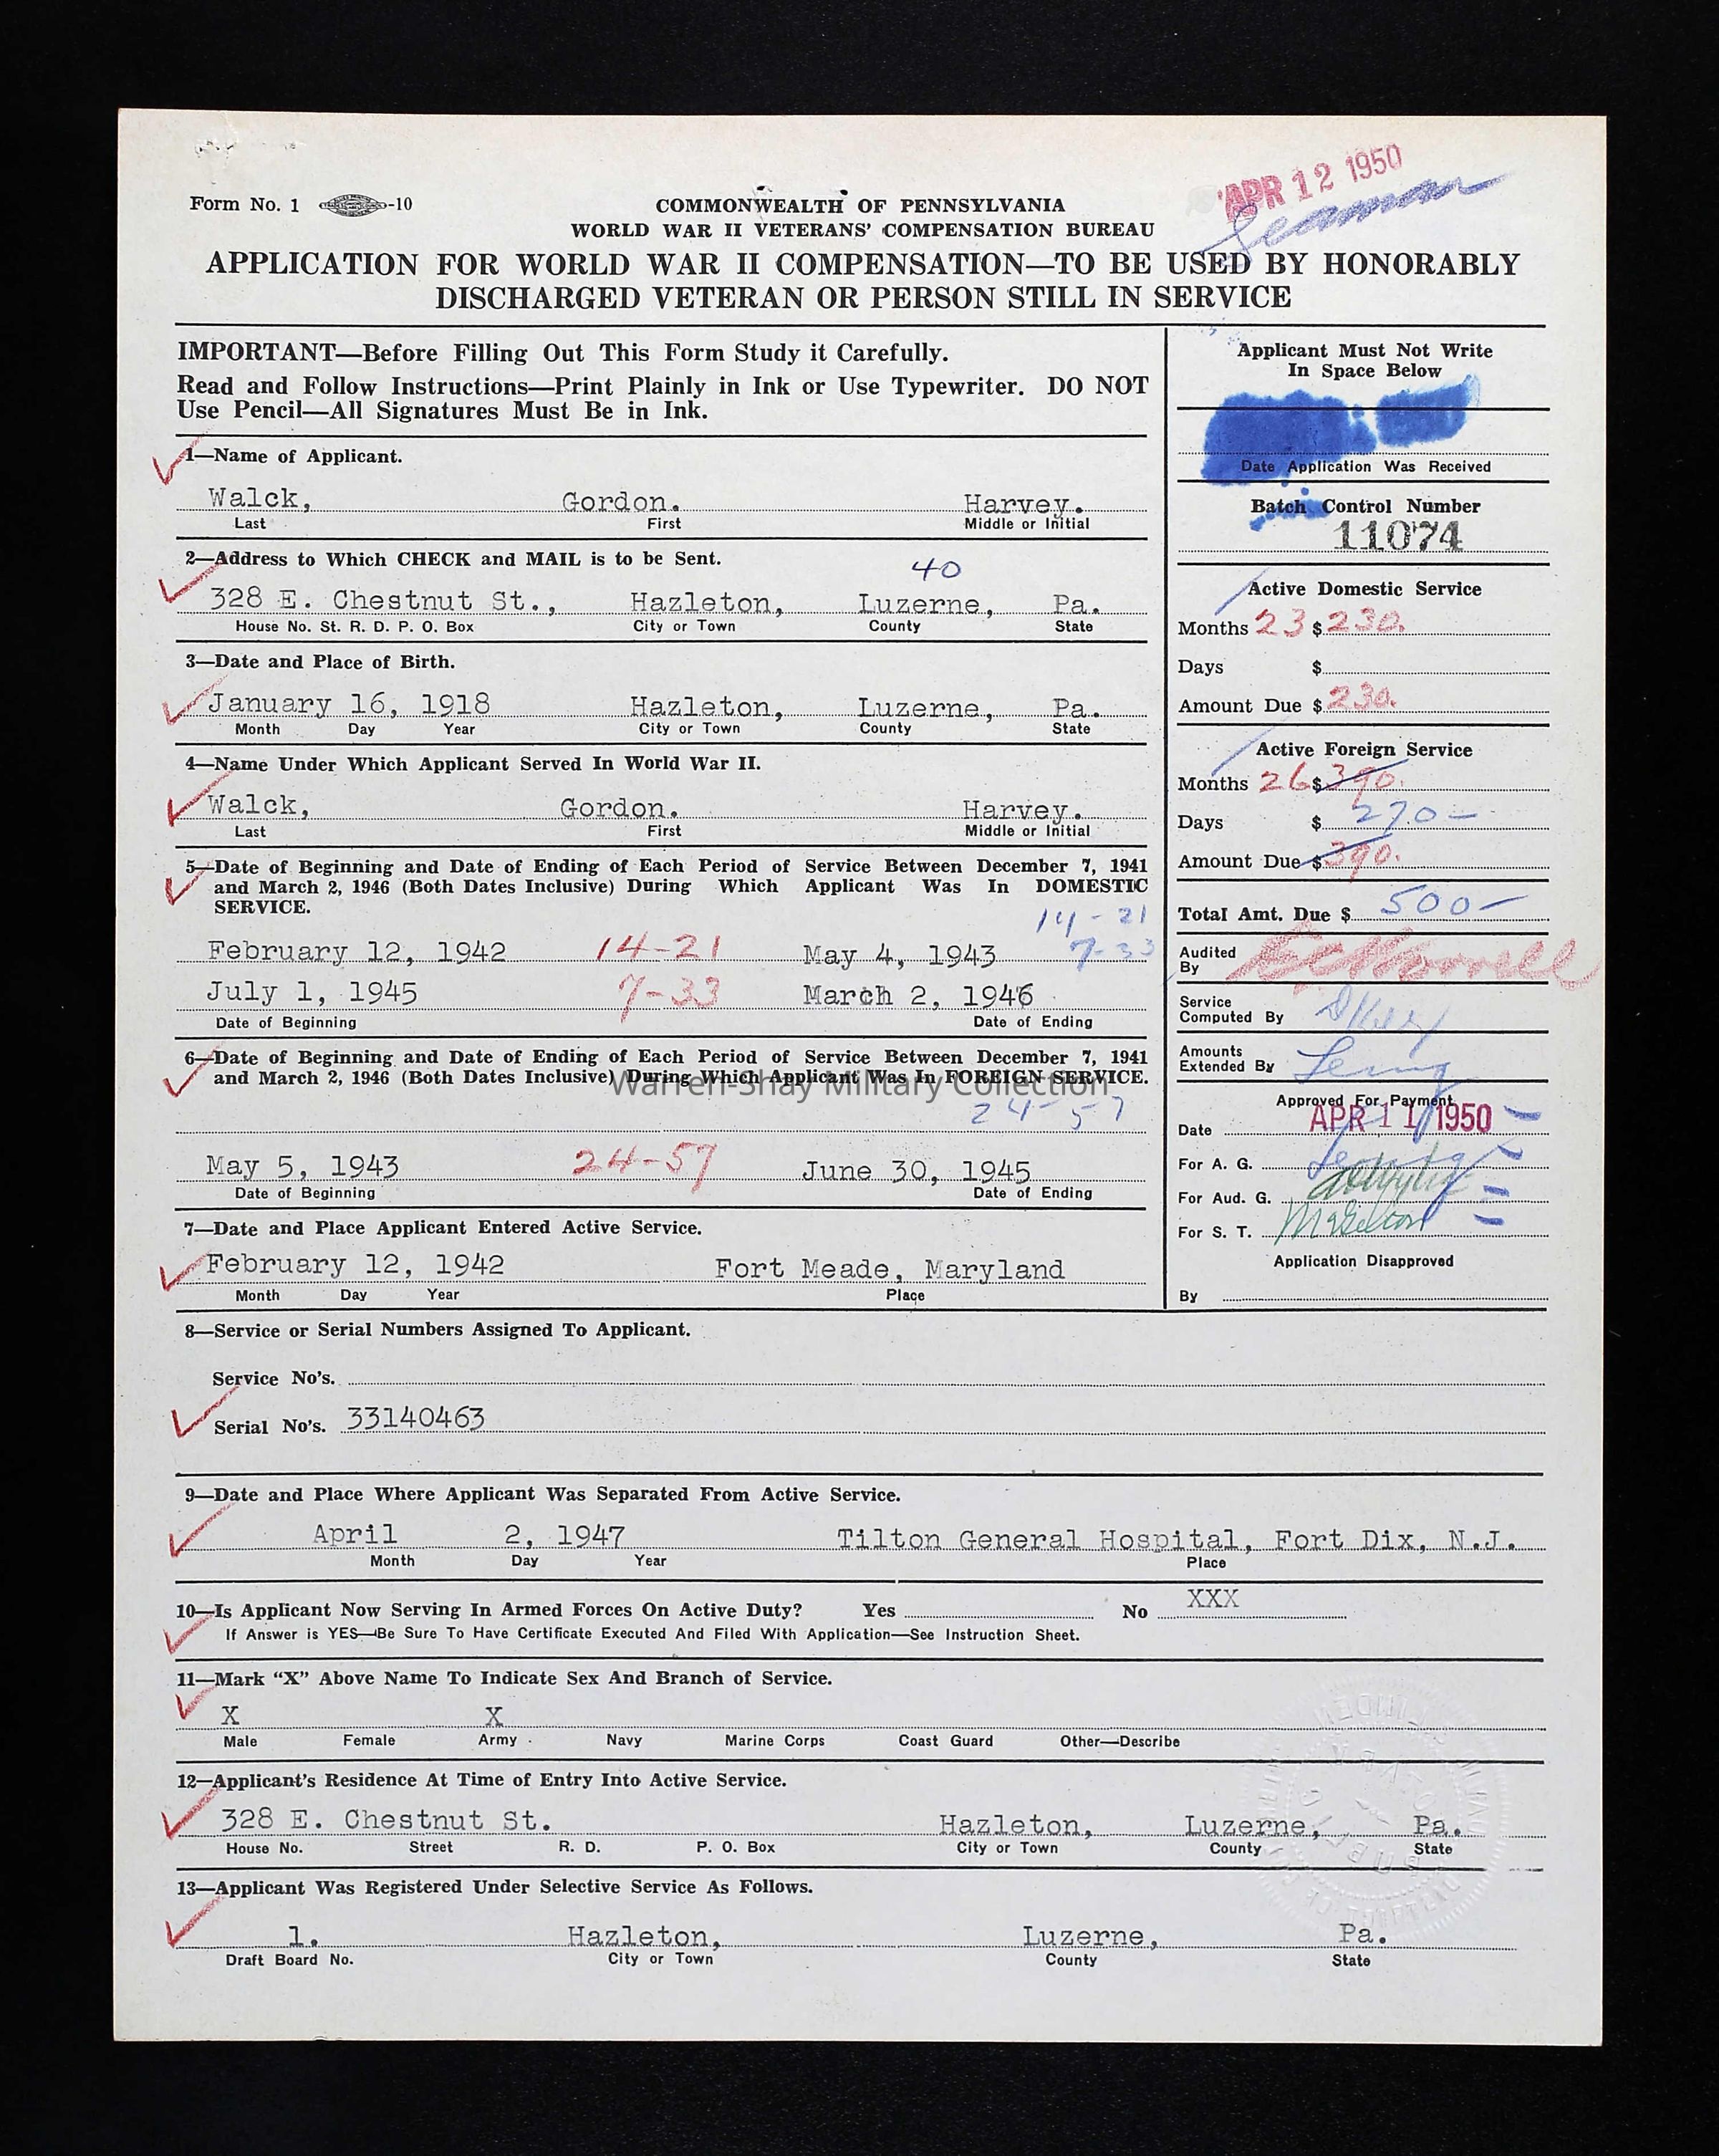 APR 12 1950
Seaman
Form No. 1 -10
COMMONWEALTH OF PENNSYLVANIA
WORLD WAR II VETERANS' COMPENSATION BUREAU
APPLICATION FOR WORLD WAR II COMPENSATION—TO BE USED BY HONORABLY
DISCHARGED VETERAN OR PERSON STILL IN SERVICE
IMPORTANT—Before Filling Out This Form Study it Carefully.
Read and Follow Instructions—Print Plainly in Ink or Use Typewriter. DO NOT
Use Pencil—All Signatures Must Be in Ink.
1—Name of Applicant.
Walck, Gordon. Harvey.
Last First Middle or Initial
2—Address to Which CHECK and MAIL is to be Sent.
40
328 E. Chestnut St., Hazleton, Luzerne, Pa.
House No. St. R. D. P. O. Box City or Town County State
3—Date and Place of Birth.
January 16, 1918 Hazleton, Luzerne, Pa.
Month Day Year City or Town County State
4—Name Under Which Applicant Served In World War II.
Walck, Gordon. Harvey.
Last First Middle or Initial
5—Date of Beginning and Date of Ending of Each Period of Service Between December 7, 1941
and March 2, 1946 (Both Dates Inclusive) During Which Applicant Was In DOMESTIC
SERVICE.
14-21
February 12, 1942 14-21 May 4, 1943 7-33
July 1, 1945 7-33 March 2, 1946
Date of Beginning Date of Ending
6—Date of Beginning and Date of Ending of Each Period of Service Between December 7, 1941
and March 2, 1946 (Both Dates Inclusive) During Which Applicant Was In FOREIGN SERVICE.
Warren-Shay Military Collection
24-57
May 5, 1943 24-57 June 30, 1945
Date of Beginning Date of Ending
7—Date and Place Applicant Entered Active Service.
February 12, 1942 Fort Meade, Maryland
Month Day Year Place
Applicant Must Not Write
In Space Below
Date Application Was Received
Batch Control Number
11074
Active Domestic Service
Months 23 $ 230.
Days $
Amount Due $ 230.
Active Foreign Service
Months 26 $ 390.
Days $ 270-
Amount Due $ 390.
Total Amt. Due $ 500-
Audited
By
Service
Computed By
Amounts
Extended By
Approved For Payment
Date APR 11 1950
For A. G.
For Aud. G.
For S. T.
Application Disapproved
By
8—Service or Serial Numbers Assigned To Applicant.
Service No's.
Serial No's. 33140463
9—Date and Place Where Applicant Was Separated From Active Service.
April 2, 1947 Tilton General Hospital, Fort Dix, N.J.
Month Day Year Place
10—Is Applicant Now Serving In Armed Forces On Active Duty? Yes No XXX
If Answer is YES—Be Sure To Have Certificate Executed And Filed With Application—See Instruction Sheet.
11—Mark “X” Above Name To Indicate Sex And Branch of Service.
X X
Male Female Army Navy Marine Corps Coast Guard Other—Describe
12—Applicant's Residence At Time of Entry Into Active Service.
328 E. Chestnut St. Hazleton, Luzerne, Pa.
House No. Street R. D. P. O. Box City or Town County State
13—Applicant Was Registered Under Selective Service As Follows.
1. Hazleton, Luzerne, Pa.
Draft Board No. City or Town County State